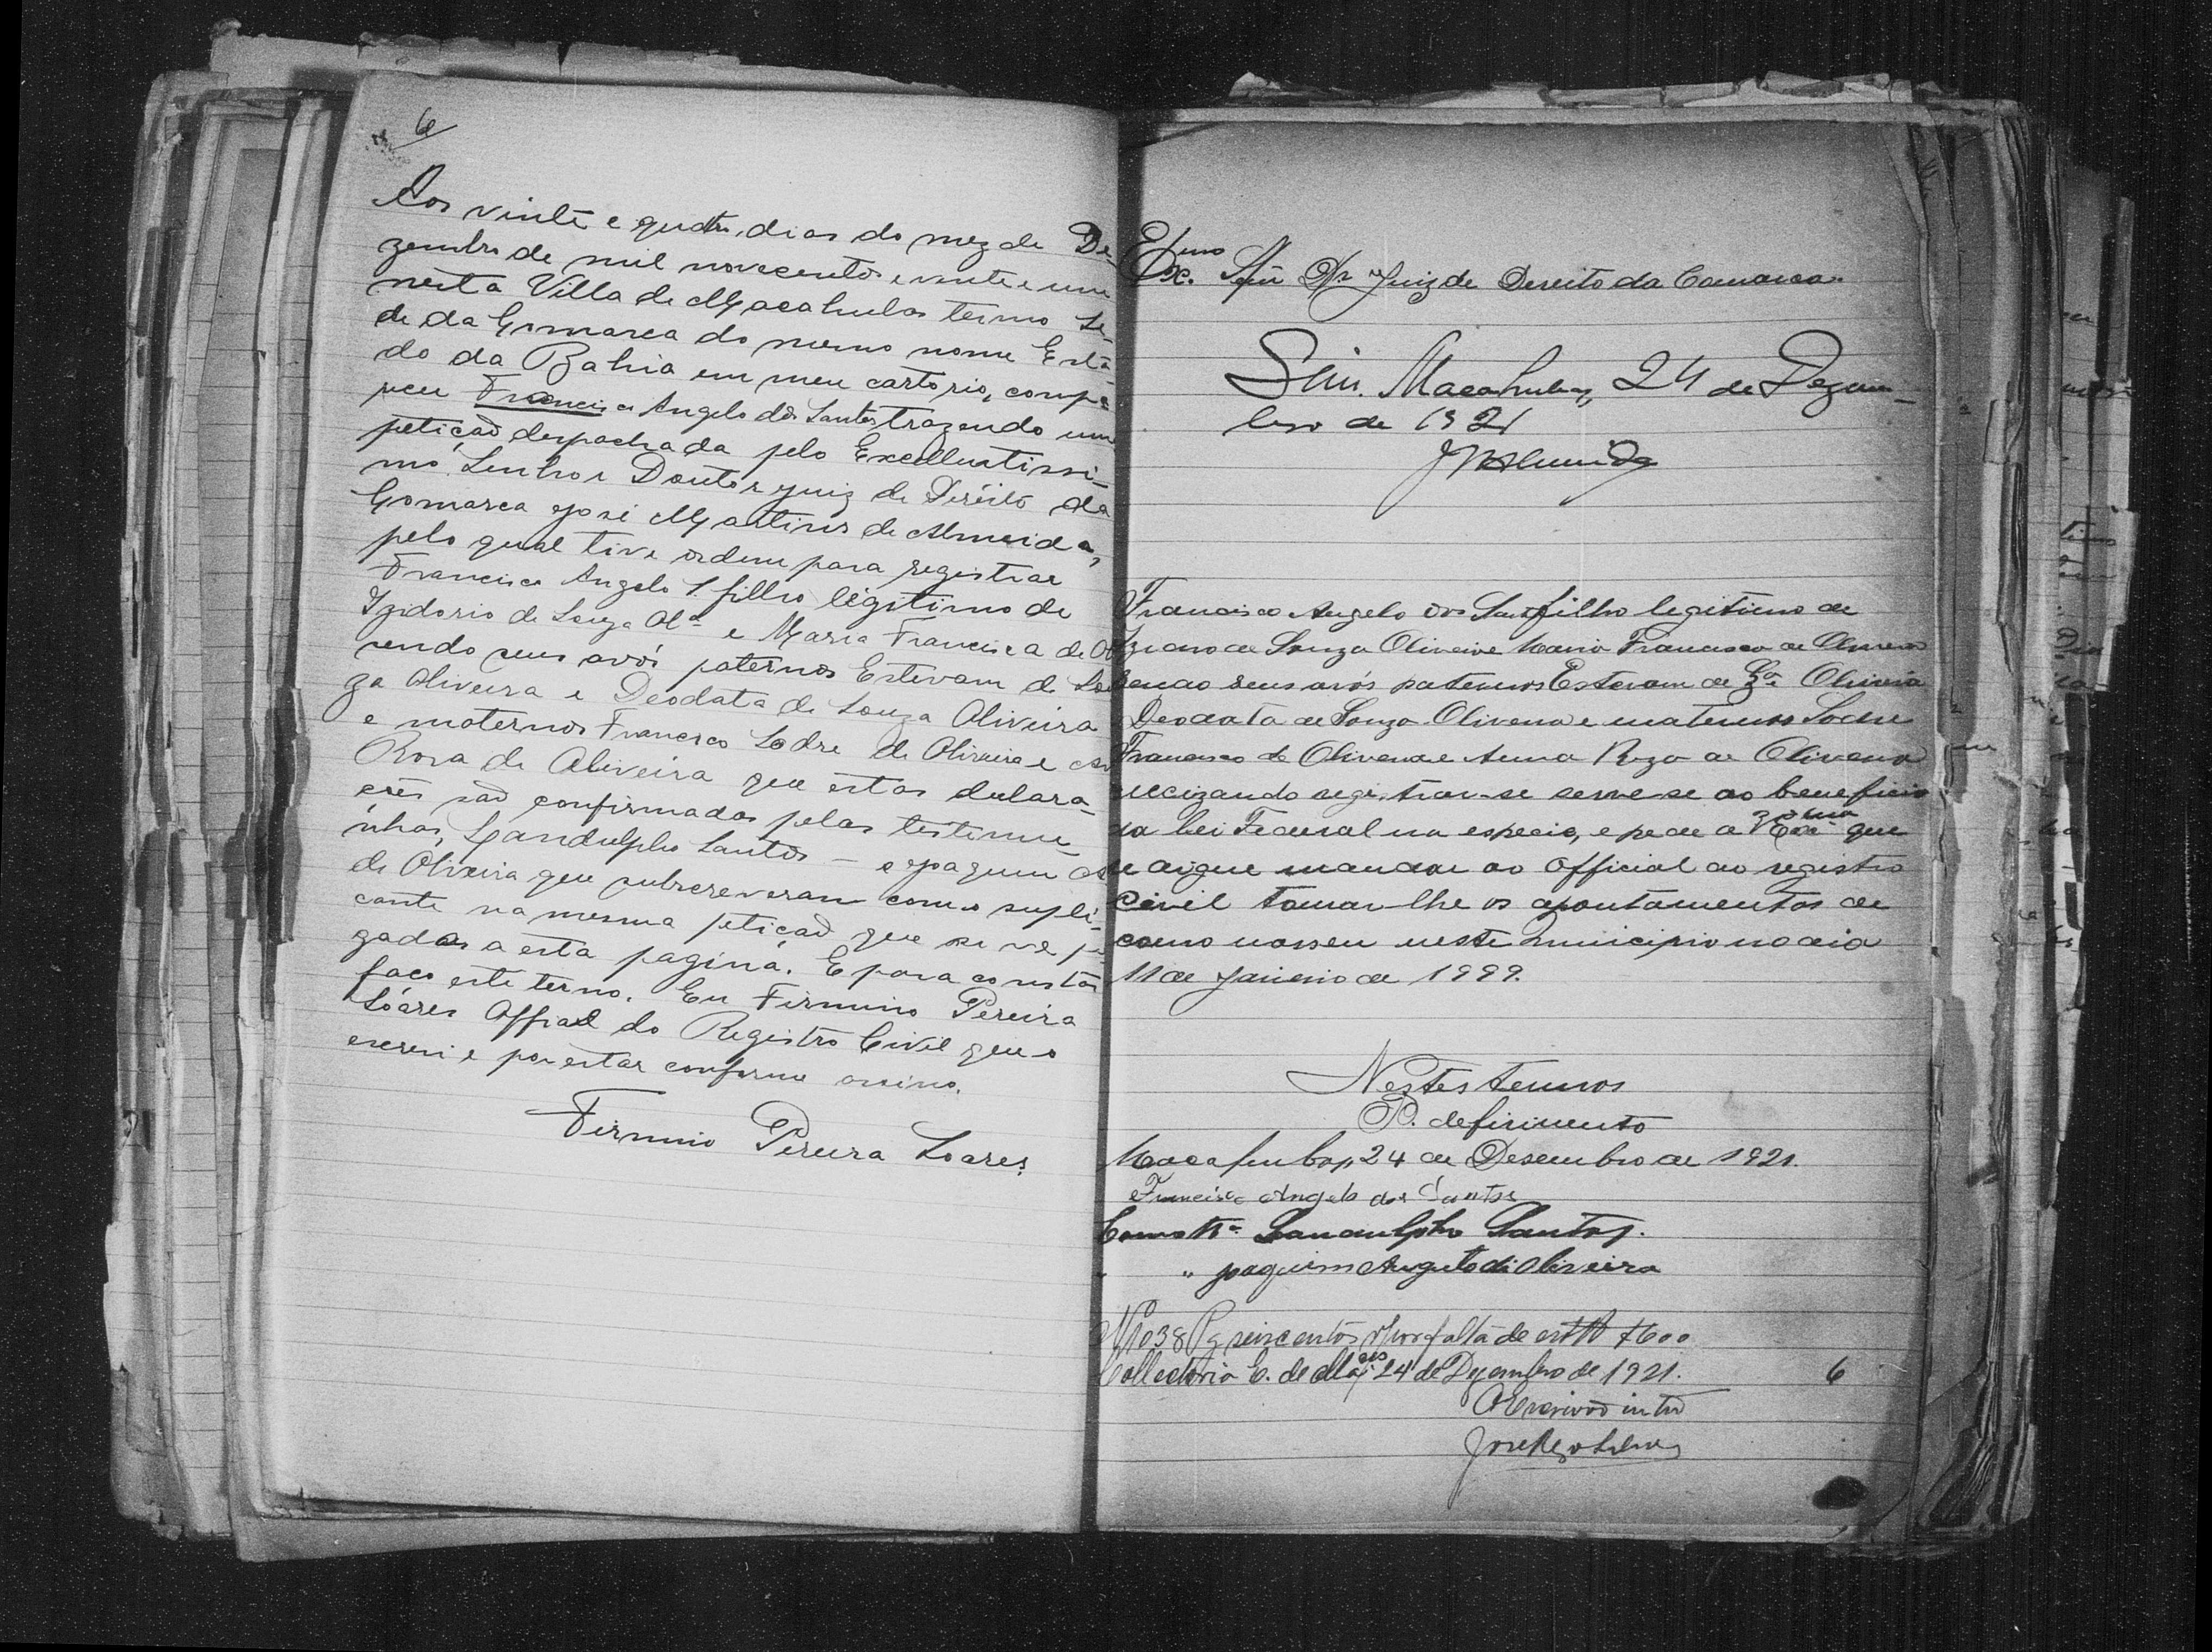 6
Aos vinte e quatro dias do mez de De-
zembro de mil novecentos e vinte e um
nesta Villa de Macahubas termo se-
de da Comarca do mesmo nome Esta-
do da Bahia em meu cartorio, compa
receu Francisco Angelo dos Santos trazendo um
petição despachada pelo Excellentissi-
mo Senhor Doutor Juiz de Direito da
Comarca José Martins de Almeida,
pelo qual tive ordem para registrar
Francisco Angelo S. filho legitimo de
Izidorio de Souza Olª e Maria Francisca de Ol
sendo seus avós paternos Estevam de Sou
za Oliveira e Deodata de Souza Oliveira
e maternos Francisco Sodre de Oliveira e
Rosa de Oliveira que estas declara
ções são confirmadas pelas testimu
nhas, Landulpho Santos — e Joaquim
de Oliveira que subscreveram com o supli-
cante na mesma petição que se vê pe
gadas a esta pagina. E para constar
faço este termo. Eu Firmino Pereira
Soares Official do Registro Civil que o
escrevi e por estar conforme assino.
Firmino Pereira Soares
Exmo Snr Dr Juiz de Direito da Comarca.
Sim. Macahubas, 24 de Dezem-
bro de 1921
JMAlmeida
Francisco Angelo dos Santos filho legitimo de
de Souza Oliveira e Maria Francisca de Oliveira
sendo seus avós paternos Estevam de Sza Oliveira
Deodata de Souza Oliveira e maternos Sodre
Francisco de Oliveira e Anna Roza de Oliveira
precizando registrar-se serve-se do beneficio
da lei Federal na especie, e pede a VExcia que
se digne mandar ao Official do registro
Civil tomar-lhe os apontamentos de
como nasseu neste municipio no dia
11 de Janeiro de 1899.
Nestes termos
P. defirimento
Macahubas, 24 de Desembro de 1921.
Francisco Angelo dos Santos
Como tta Landulpho Santos.
" " Joaquim Augusto de Oliveira
N 1038 Pg seiscentos rs por falta de estta $600
Collectoria E. de Mas 24 de Dezembro de 1921. 6
O Escrivão intº